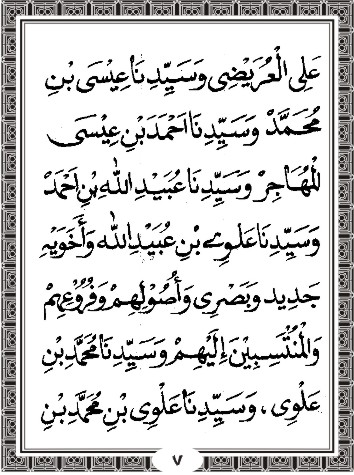 عَلِى الْعُرَيْضِى وَسَيِّدِنَا عِيْسَى بْنِ
مُحَمَّدْ وَسَيِّدِنَا اَحْمَدَ بْنِ عِيْسَى
الْمُهَاجِرْ وَسَيِّدِنَا عُبَيْدِ اللّٰهِ بْنِ اَحْمَدْ
وَسَيِّدِنَا عَلَوِيْ بْنِ عُبَيْدِ اللّٰه وَأَخَوَيْهِ
جَدِيد وَبَصْرِى وَأُصُوْلِهِمْ وَفُرُوْعِهِمْ
وَالْمُنْتَسِبِيْنَ إِلَيْهِمْ وَسَيِّدِنَا مُحَمَّدِ بْنِ
عَلَوِى ، وَسَيِّدِنَا عَلَوِى بْنِ مُحَمَّدِ بْنِ
٧